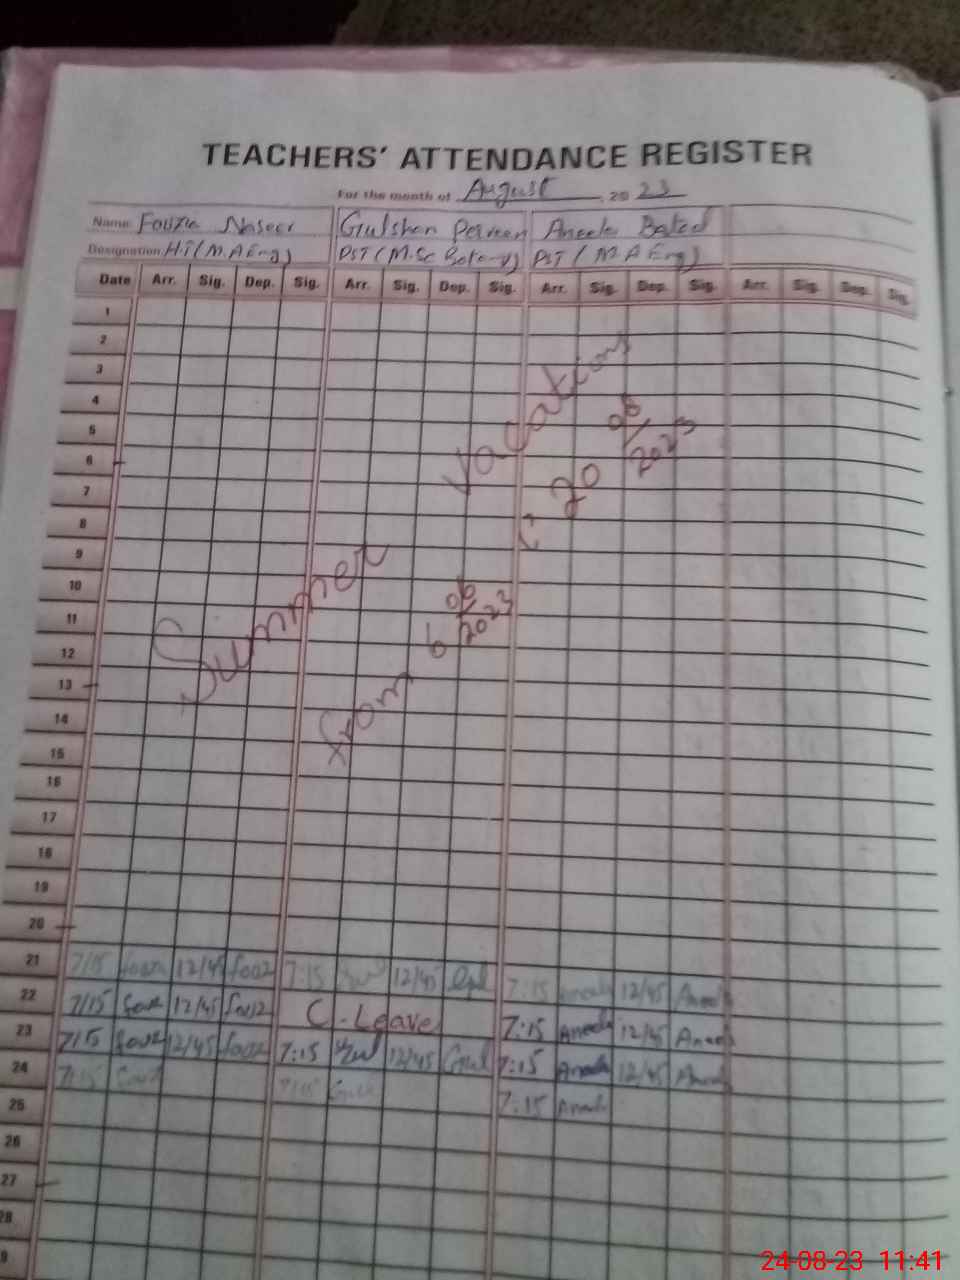 TEACHERS' ATTENDANCE REGISTER
For the month of August, 2023
Name Fouzia Naseer Gulshan Perveen Aneela
Designation HT (M.A Eng) PST (M.Sc Botany) PST (M.A Eng)
Date Arr. Sig. Dep. Sig. Arr. Sig. Dep. Sig. Arr. Sig. Dep. Sig. Arr. Sig. Dep. Sig.
1
2
3
4
5
6
7
8
9
10
11
12
13
14
15
16
17
18
19
20
Summer Vacations
from 6/06/2023 to 20/08/2023
21 7/15 Fouz 12/45 Fouz 7:15 Gul 12/45 Gul 7:15 Aneela 12/45 Aneela
22 7/15 Fouz 12/45 Fouz C. Leave 7:15 Aneela 12/45 Aneela
23 7/15 Fouz 12/45 Fouz 7:15 Gul 12/45 Gul 7:15 Aneela 12/45 Aneela
24 7:15 Fouz 7:15 Gul 7:15 Aneela
25
26
27
28
9
24-08-23 11:41